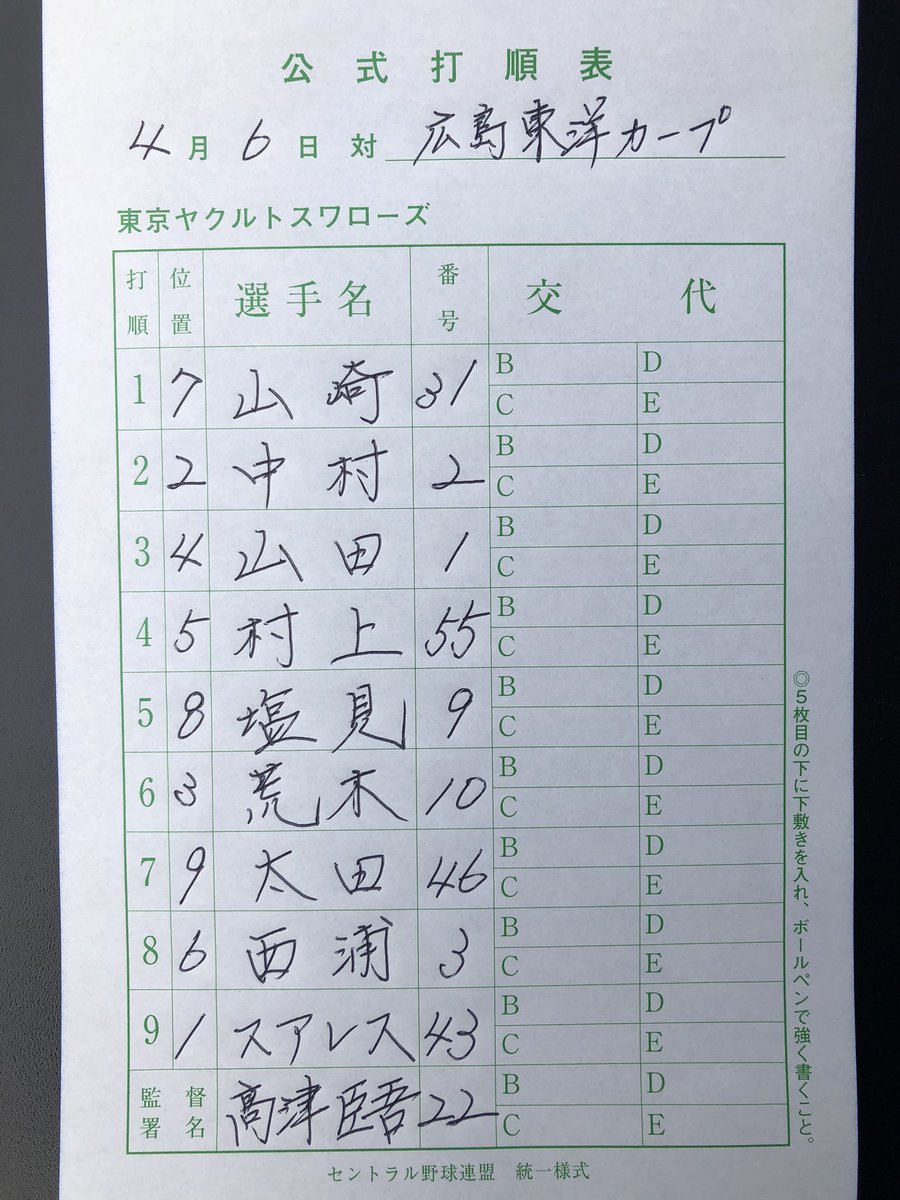 公式打順表
4月6日対 広島東洋カープ
東京ヤクルトスワローズ
打順 位置 選手名 番号 交代
1 7 山崎 31 B D C E
2 2 中村 2 B D C E
3 4 山田 1 B D C E
4 5 村上 55 B D C E
5 8 塩見 9 B D C E
6 3 荒木 10 B D C E
7 9 太田 46 B D C E
8 6 西浦 3 B D C E
9 1 スアレス 43 B D C E
監督署名 高津臣吾 22 B D C E
◎5枚目の下に下敷きを入れ、ボールペンで強く書くこと。
セントラル野球連盟 統一様式